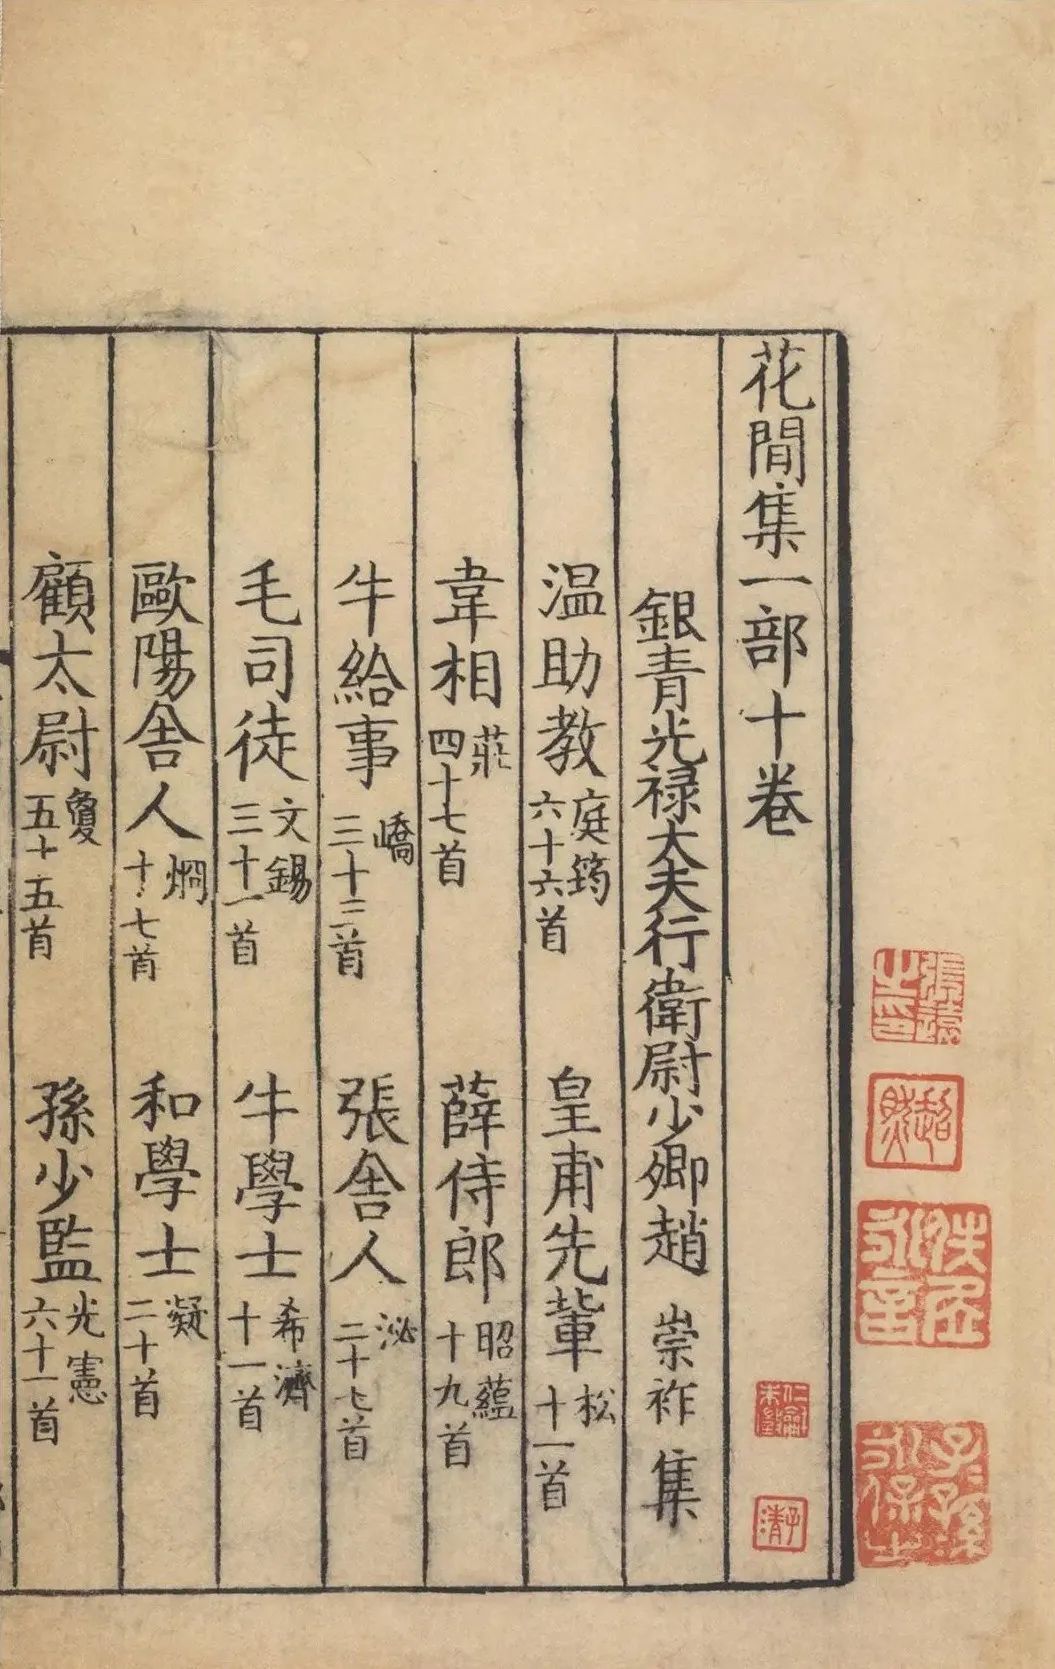 花閒集一部十卷
銀青光禄大夫行衛尉少卿趙 崇祚 集
温助教 庭筠 六十六首 皇甫先輩 松 十一首
韋相 莊 四十七首 薛侍郎 昭蘊 十九首
牛給事 嶠 三十三首 張舍人 泌 二十七首
毛司徒 文錫 三十一首 牛學士 希濟 十一首
歐陽舍人 烱 十七首 和學士 凝 二十首
顧太尉 敻 五十五首 孫少監 光憲 六十一首
子清